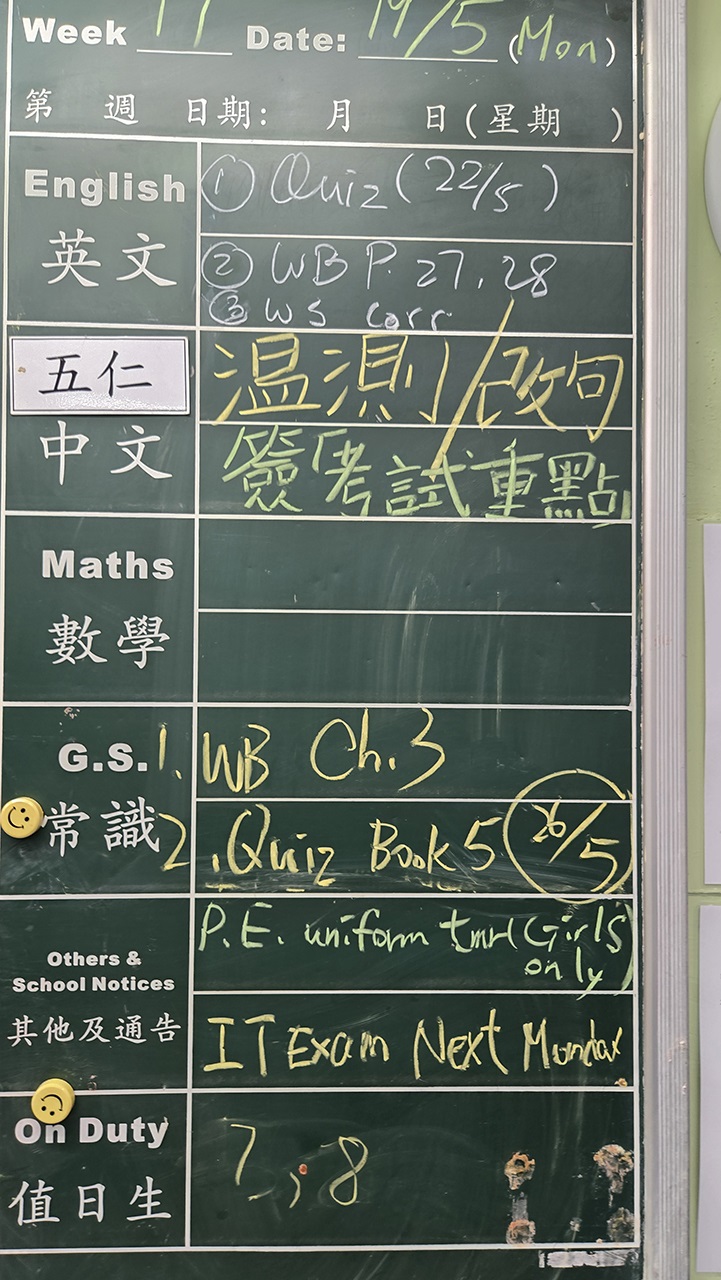 Week 17 Date: 19/5 (Mon)
第 週 日期: 月 日(星期 )
English ① Quiz (22/5)
英文 ② WB P. 27, 28
③ WS Corr
五仁 温測/改句
中文 簽考試重點
Maths
數學
G.S. 1. WB Ch.3
常識 2. Quiz Book 5 (26/5)
P.E. uniform tmr (Girls
only)
Others &
School Notices
其他及通告 IT Exam Next Monday
On Duty 7, 8
值日生